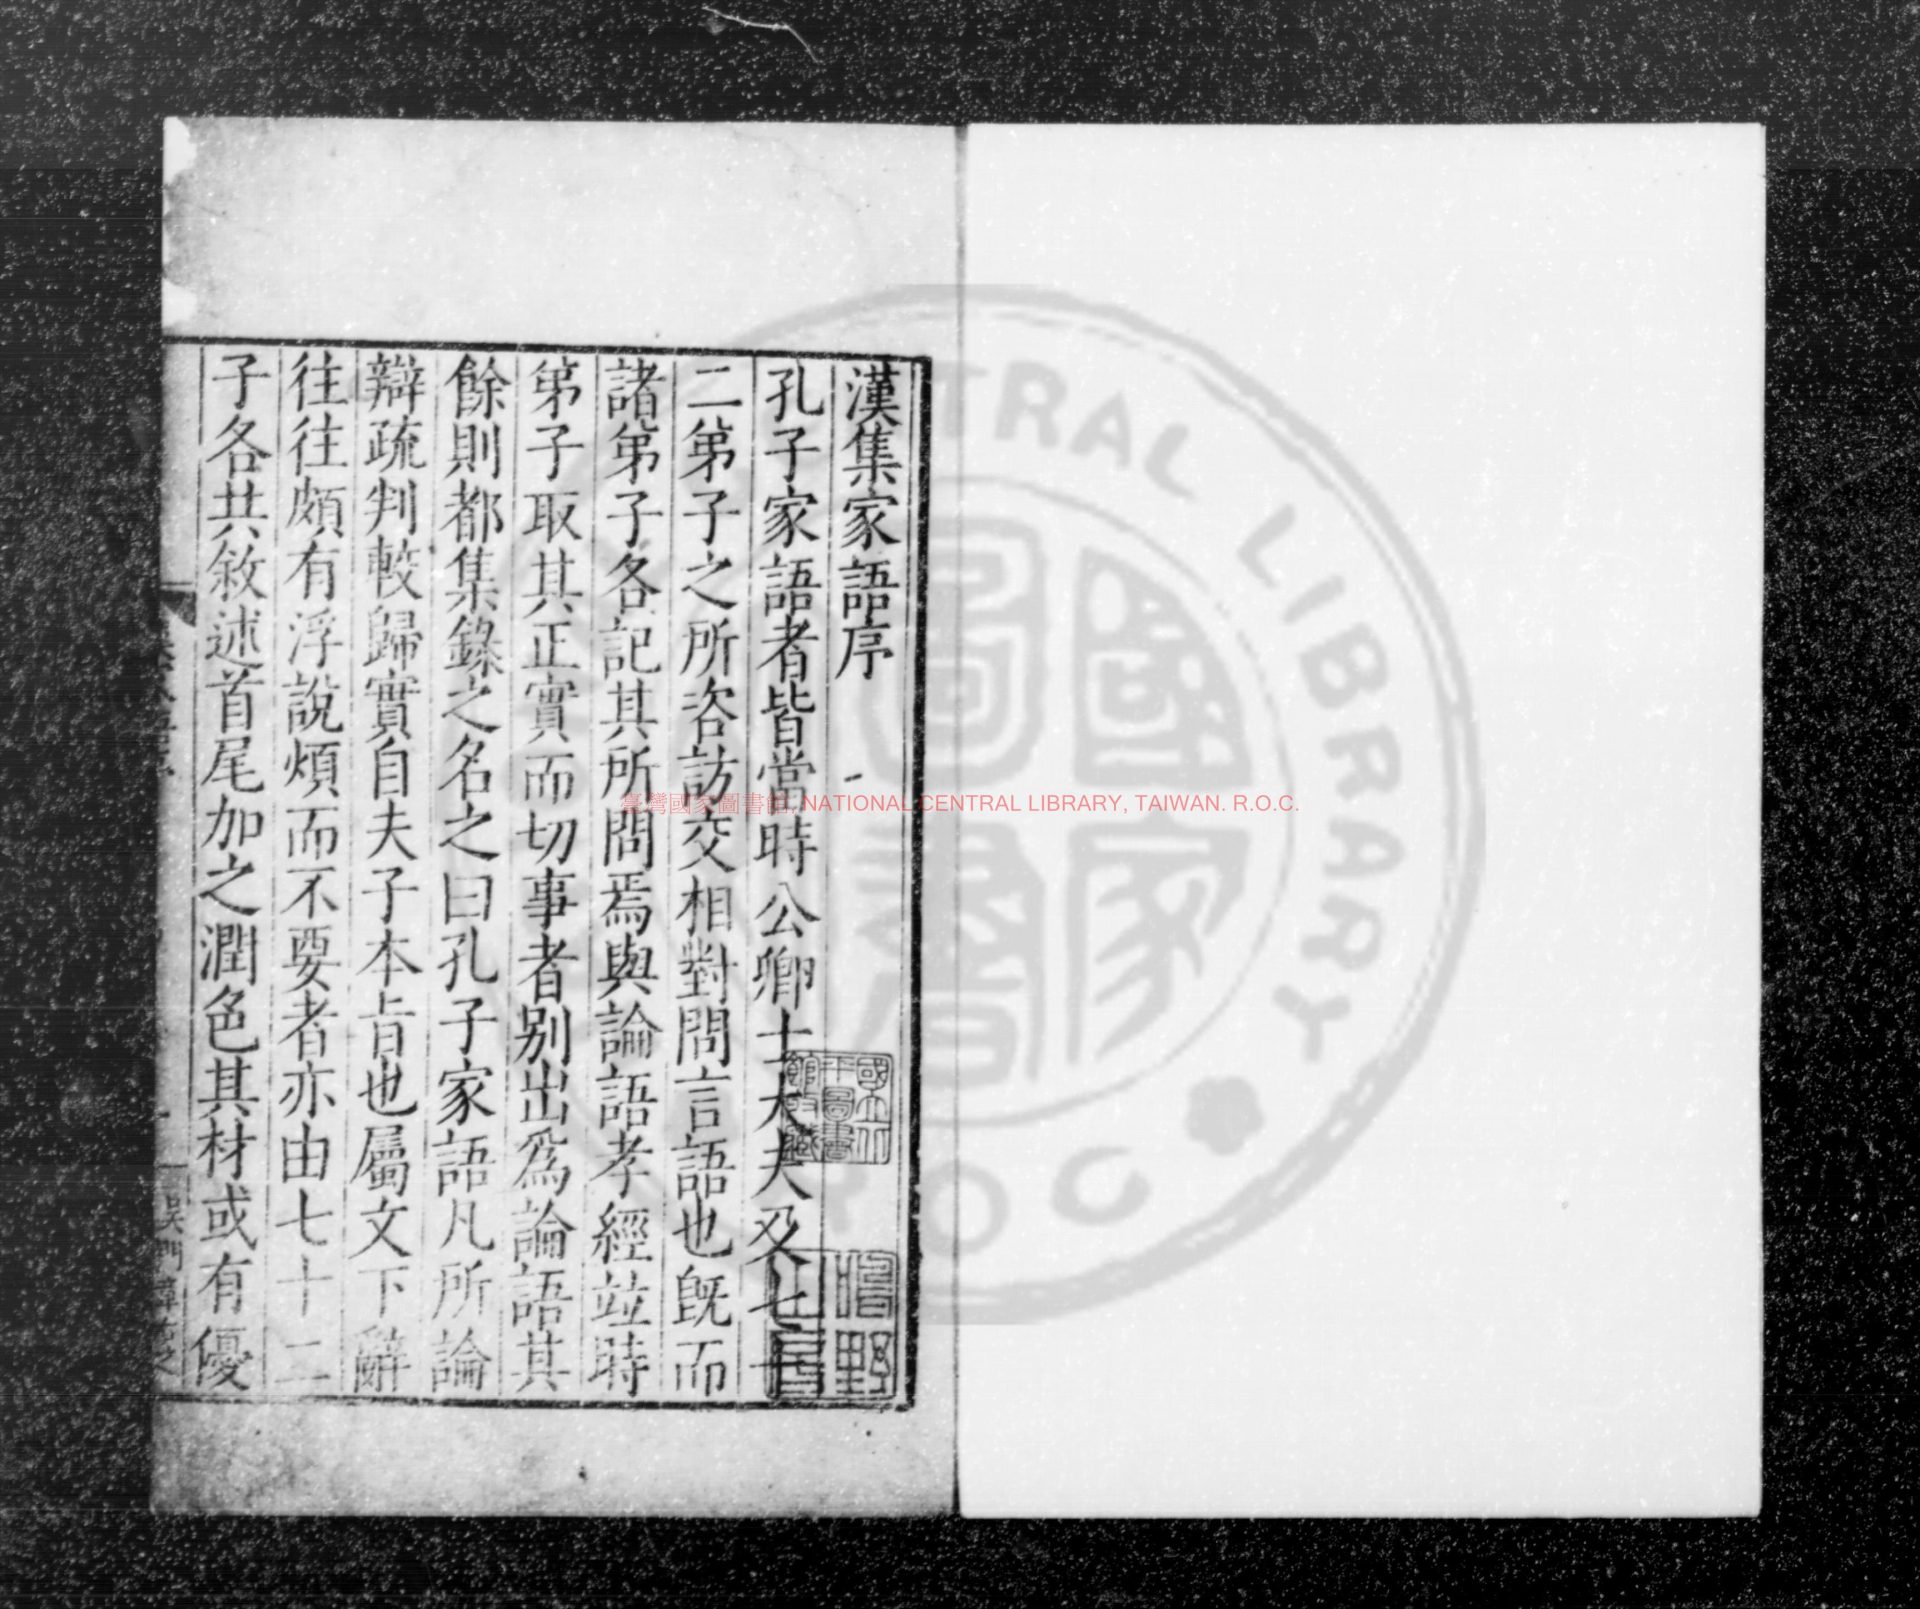 漢集家語序
孔子家語者皆當時公卿士大夫及七十
二弟子之所咨訪交相對問言語也旣而
諸弟子各記其所問焉與論語孝經竝時
弟子取其正實而切事者別出爲論語其
餘則都集錄之名之曰孔子家語凡所論
辯疏判較歸實自夫子本旨也屬文下辭
往往頗有浮說煩而不要者亦由七十二
子各共敘述首尾加之潤色其材或有優
吳門
國立北
平圖書
館收藏
臺灣國家圖書館, NATIONAL CENTRAL LIBRARY, TAIWAN. R.O.C.
CENTRAL LIBRARY
R.O.C
國家
圖書